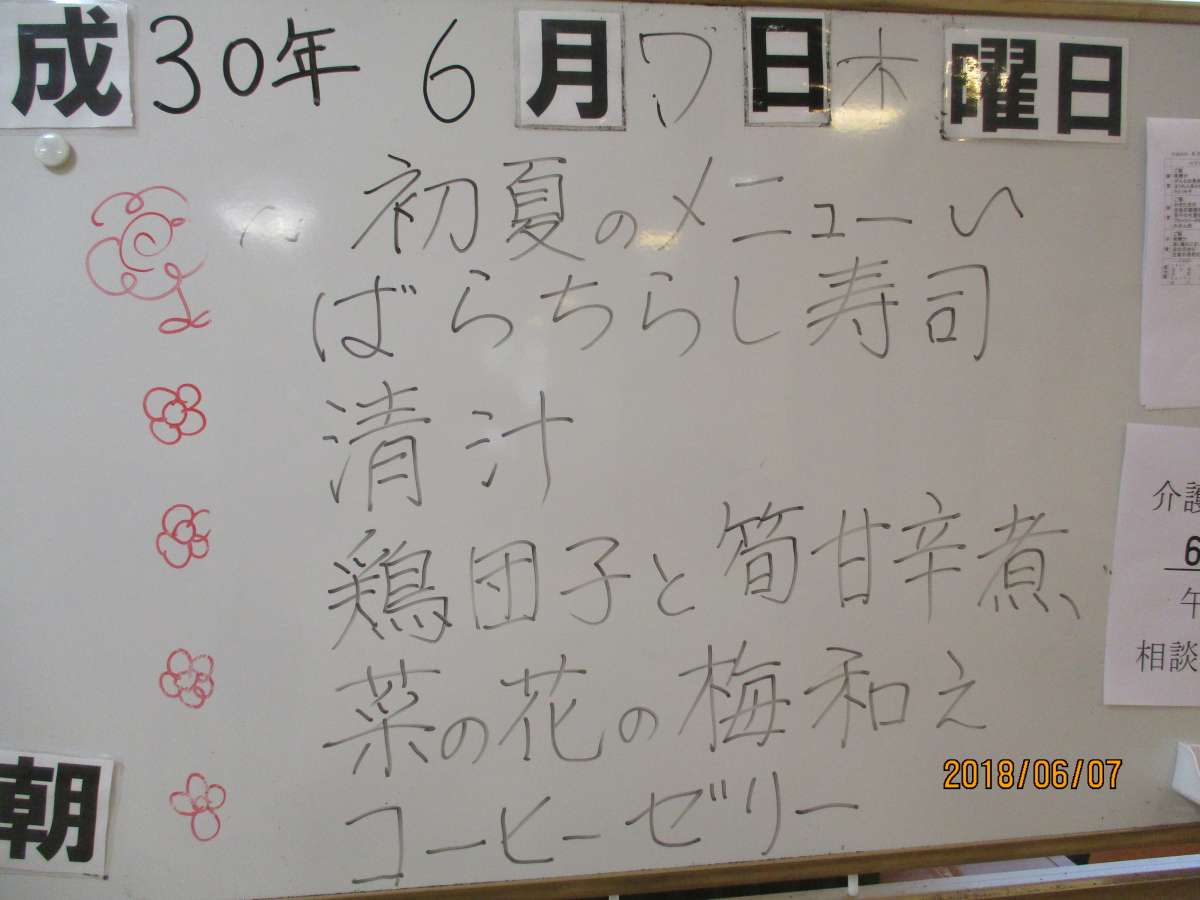 成30年 6月7日木曜日
～初夏のメニュー～
ばらちらし寿司
清汁
鶏団子と筍甘辛煮
菜の花の梅和え
コーヒーゼリー
朝
介護
6
午
相談
2018/06/07